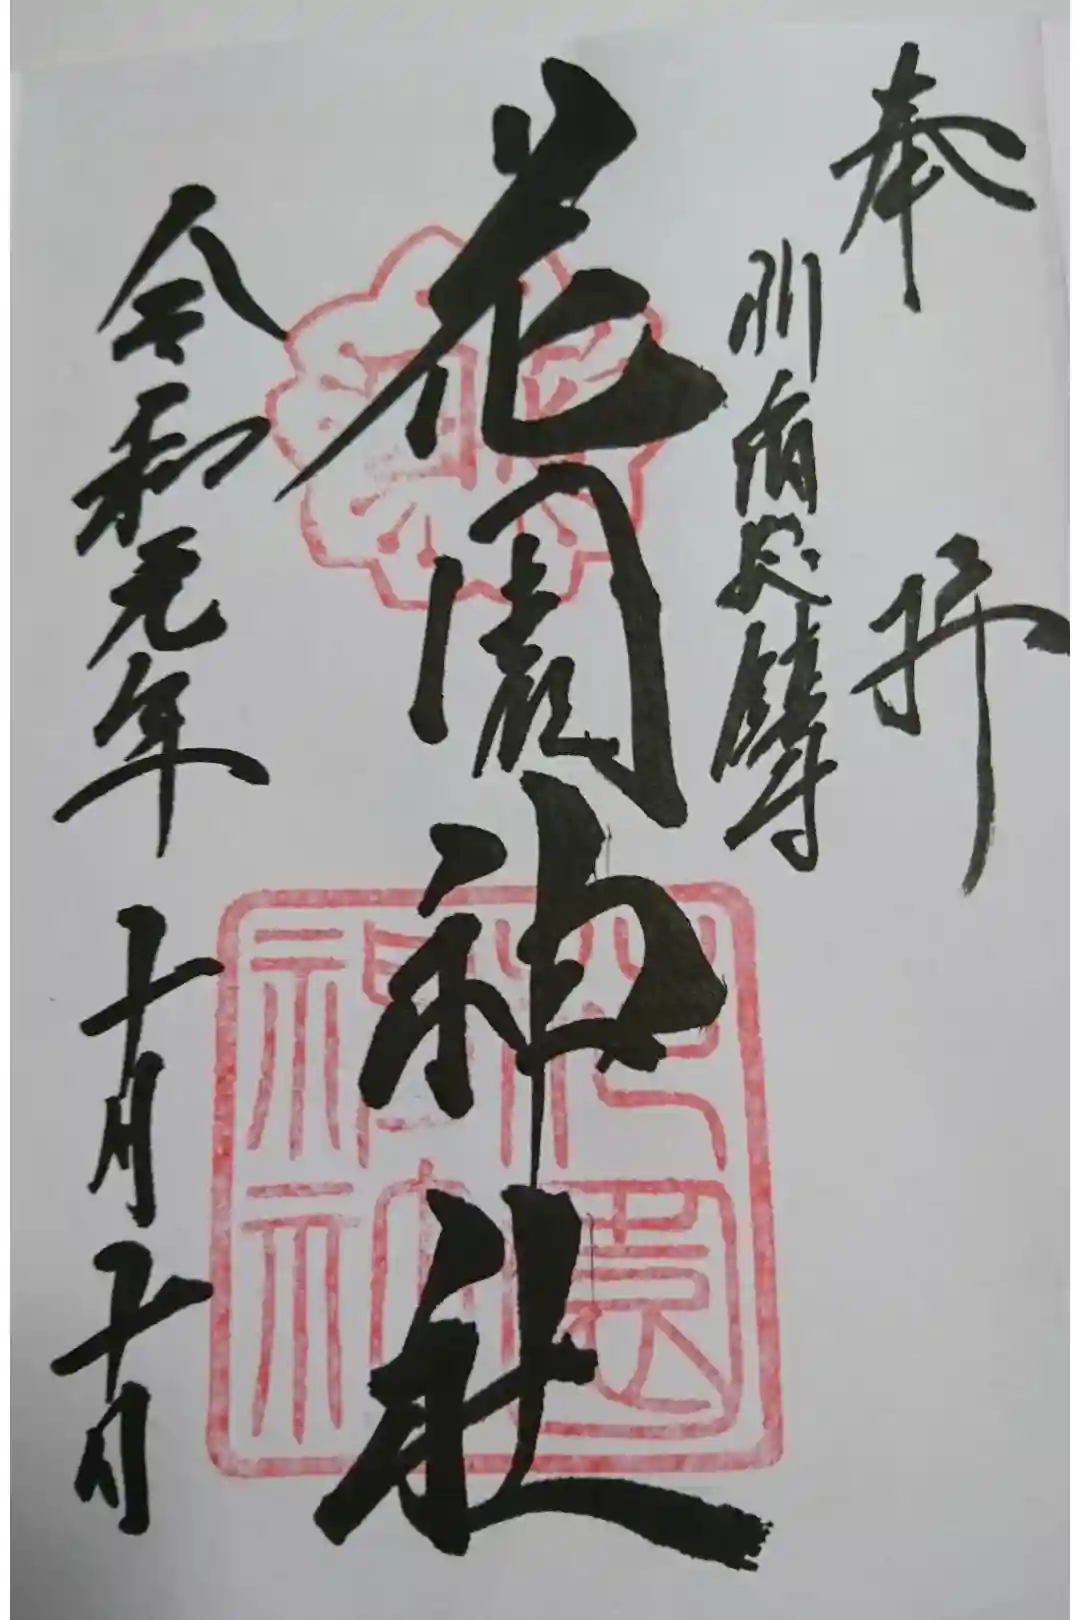 奉拝
新宿総鎮守
花園神社
令和元年十月十日
花園
神社